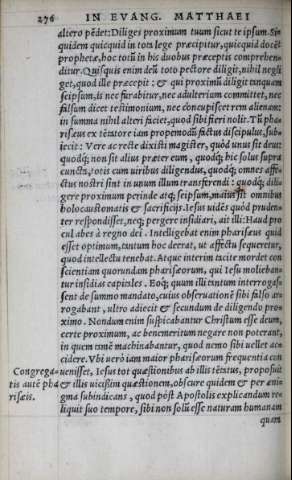 276 IN EVANG. MATTHAEI
altero pēdet: Diliges proximum tuum sicut te ipsum. Si-
quidem quicquid in tota lege præcipitur, quicquid docēt
prophetæ, hoc totū in his duobus præceptis comprehen-
ditur. Quisquis enim deū toto pectore diligit, nihil negli
get, quod ille præcepit: & qui proximū diligit tanquam
seipsum, is nec furabitur, nec adulterium committet, nec
falsum dicet testimonium, nec concupiscet rem alienam:
in summa nihil alteri faciet, quod sibi fieri nolit. Tū pha-
risæus ex tētatore iam propemodū factus discipulus, sub-
iecit: Vere ac recte dixisti magister, quòd unus sit deus:
quodq́; non sit alius præter eum, quodq́; hic solus supra
cuncta, totis cum uiribus diligendus, quodq́; omnes affe-
ctus nostri sint in unum illum transferendi: quodq́; dili-
gere proximum perinde atq́; seipsum, maius sit omnibus
holocaustomatis & sacrificijs. Iesus uidēs quòd pruden-
ter respondisset, neq́; pergere insidiari, ait illi: Haud pro
cul abes à regno dei. Intelligebat enim pharisæus quid
esset optimum, tantum hoc deerat, ut affectu sequeretur,
quod intellectu tenebat. Atque interim tacite mordet con
scientiam quorundam pharisæorum, qui Iesu molieban-
tur insidias capitales. Eoq́; quum illi tantum interroga-
sent de summo mandato, cuius obseruationē sibi falso ar-
rogabant, ultro adiecit & secundum de diligendo pro-
ximo. Nondum enim suspicabantur Christum esse deum,
certe proximum, ac benemeritum negare non poterant,
in quem tamē machinabantur, quod nemo sibi uellet ac-
cidere. Vbi uerò iam maior pharisæorum frequentia con
Congrega- uenisset, Iesus tot quæstionibus ab illis tētatus, proposuit
tis autē pha & illis uicissim quæstionem, obscure quidem & per æni-
risæis. gma subindicans, quod pòst Apostolis explicandum re-
liquit suo tempore, sibi non solū esse naturam humanam
quam